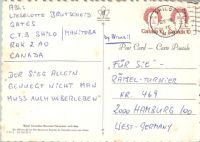 ABS.
LIESELOTTE BRUTSCHEIS
GATES
C.T.3 SHILO / MANITOBA
ROK 2A0
CANADA
DER SIEG ALLEIN
GENUEGT NICHT MAN
MUSS AUCH UEBERLEBEN
by Airmail
Post Card – Carte Postale
FÜR SIE -
RÄTSEL-TURNIER
NR. 469
2000 HAMBURG 100
WEST-GERMANY